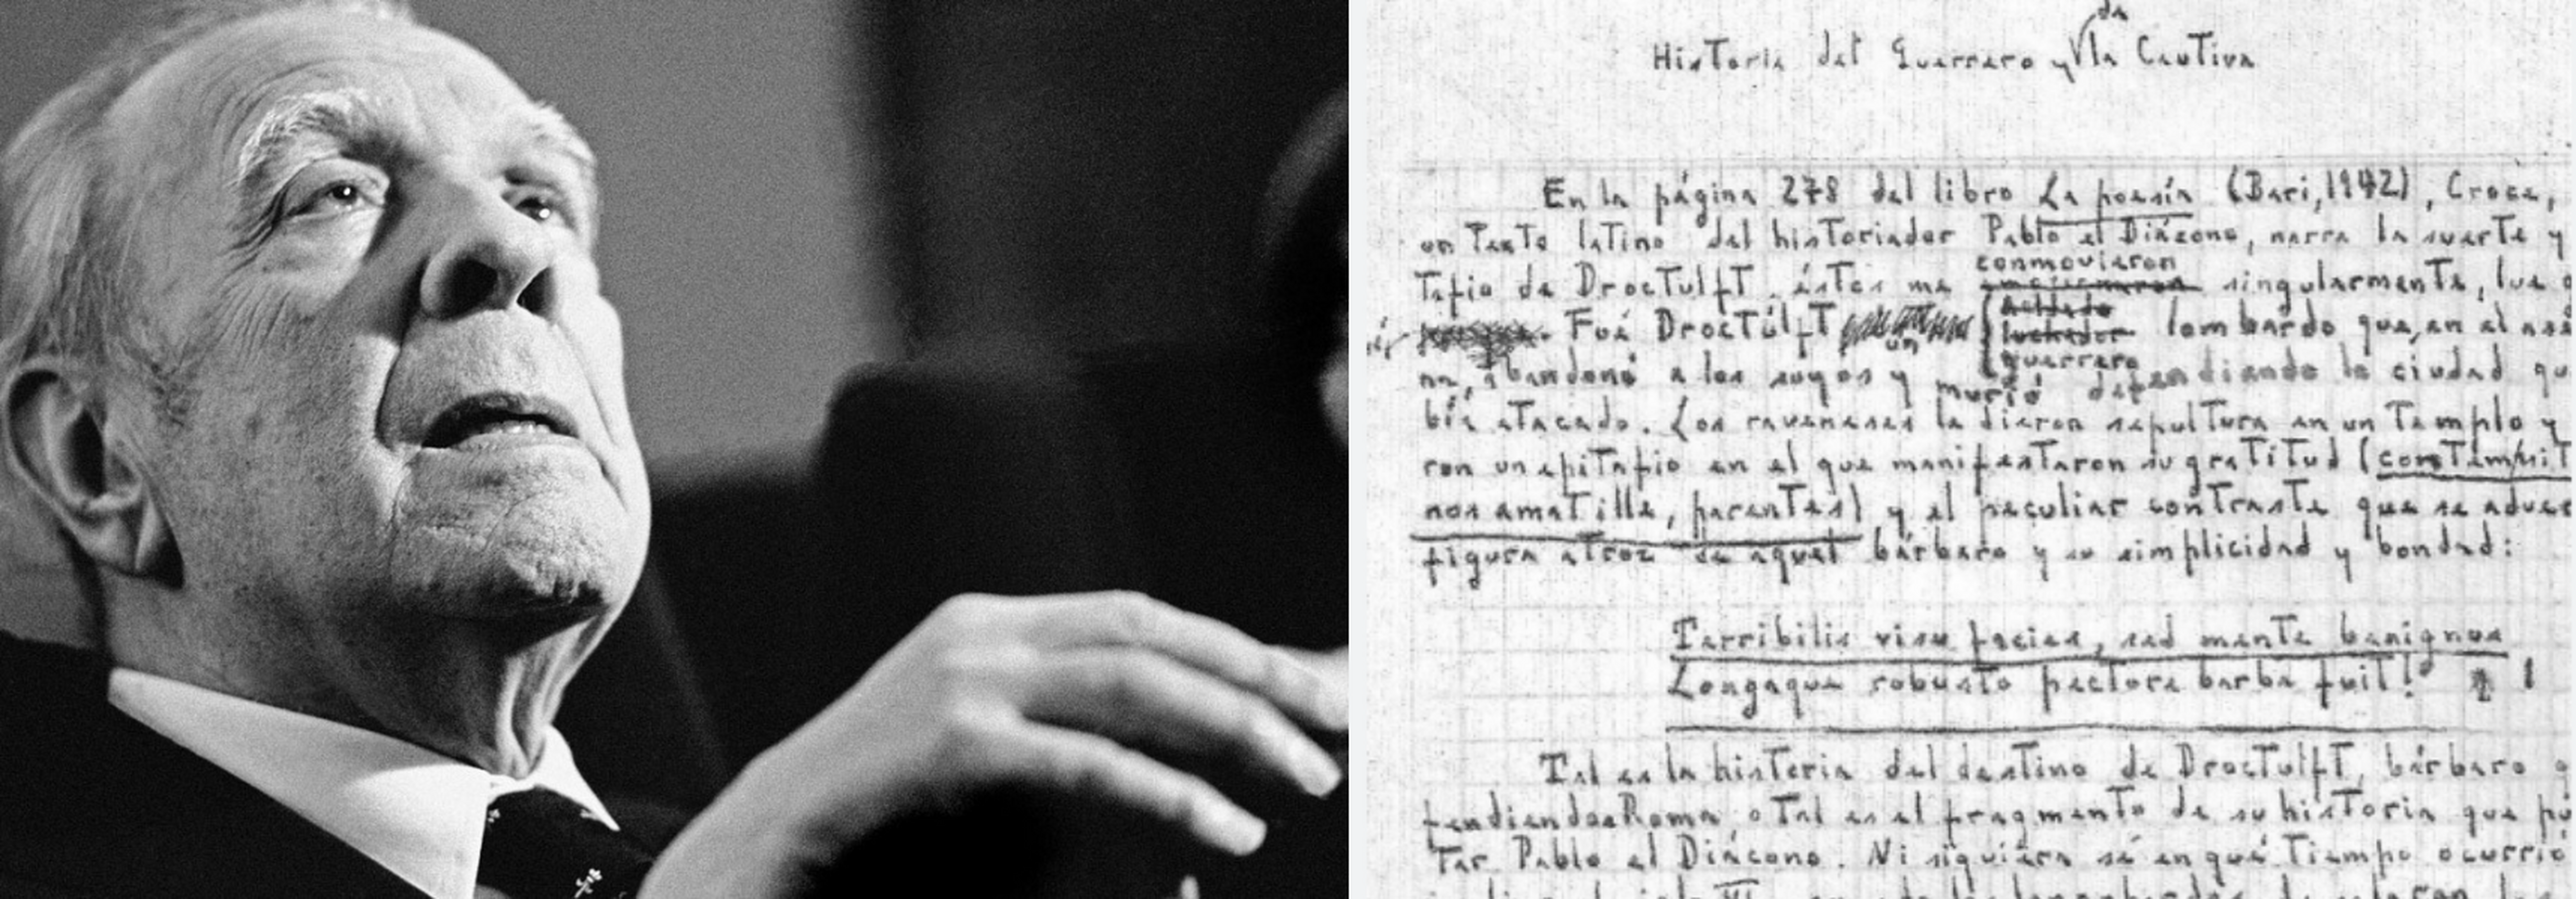 Historia del Guerrero y de la Cautiva
En la página 278 del libro La poesía (Bari, 1942), Croce,
un texto latino del historiador Pablo el Diácono, narra la suerte y
tafio de Droctulft, éstos me conmovieron singularmente, lue
Fué Droctulft un guerrero lombardo que, en el ase
na, abandonó a los suyos y murió defendiendo la ciudad qu
bía atacado. Los raveneses le dieron sepultura en un templo y
ron un epitafio en el que manifestaron su gratitud (contempsit
nos amat ille, parentes) y el peculiar contraste que se adver
figura atroz de aquel bárbaro y su simplicidad y bondad:
Terribilis visu facies, sed mente benignus
Longaque robusto pectore barba fuit! 1
Tal es la historia del destino de Droctulft, bárbaro q
fendiendo a Roma, o tal es el fragmento de su historia que pu
tar Pablo el Diácono. Ni siquiera sé en qué tiempo ocurrió